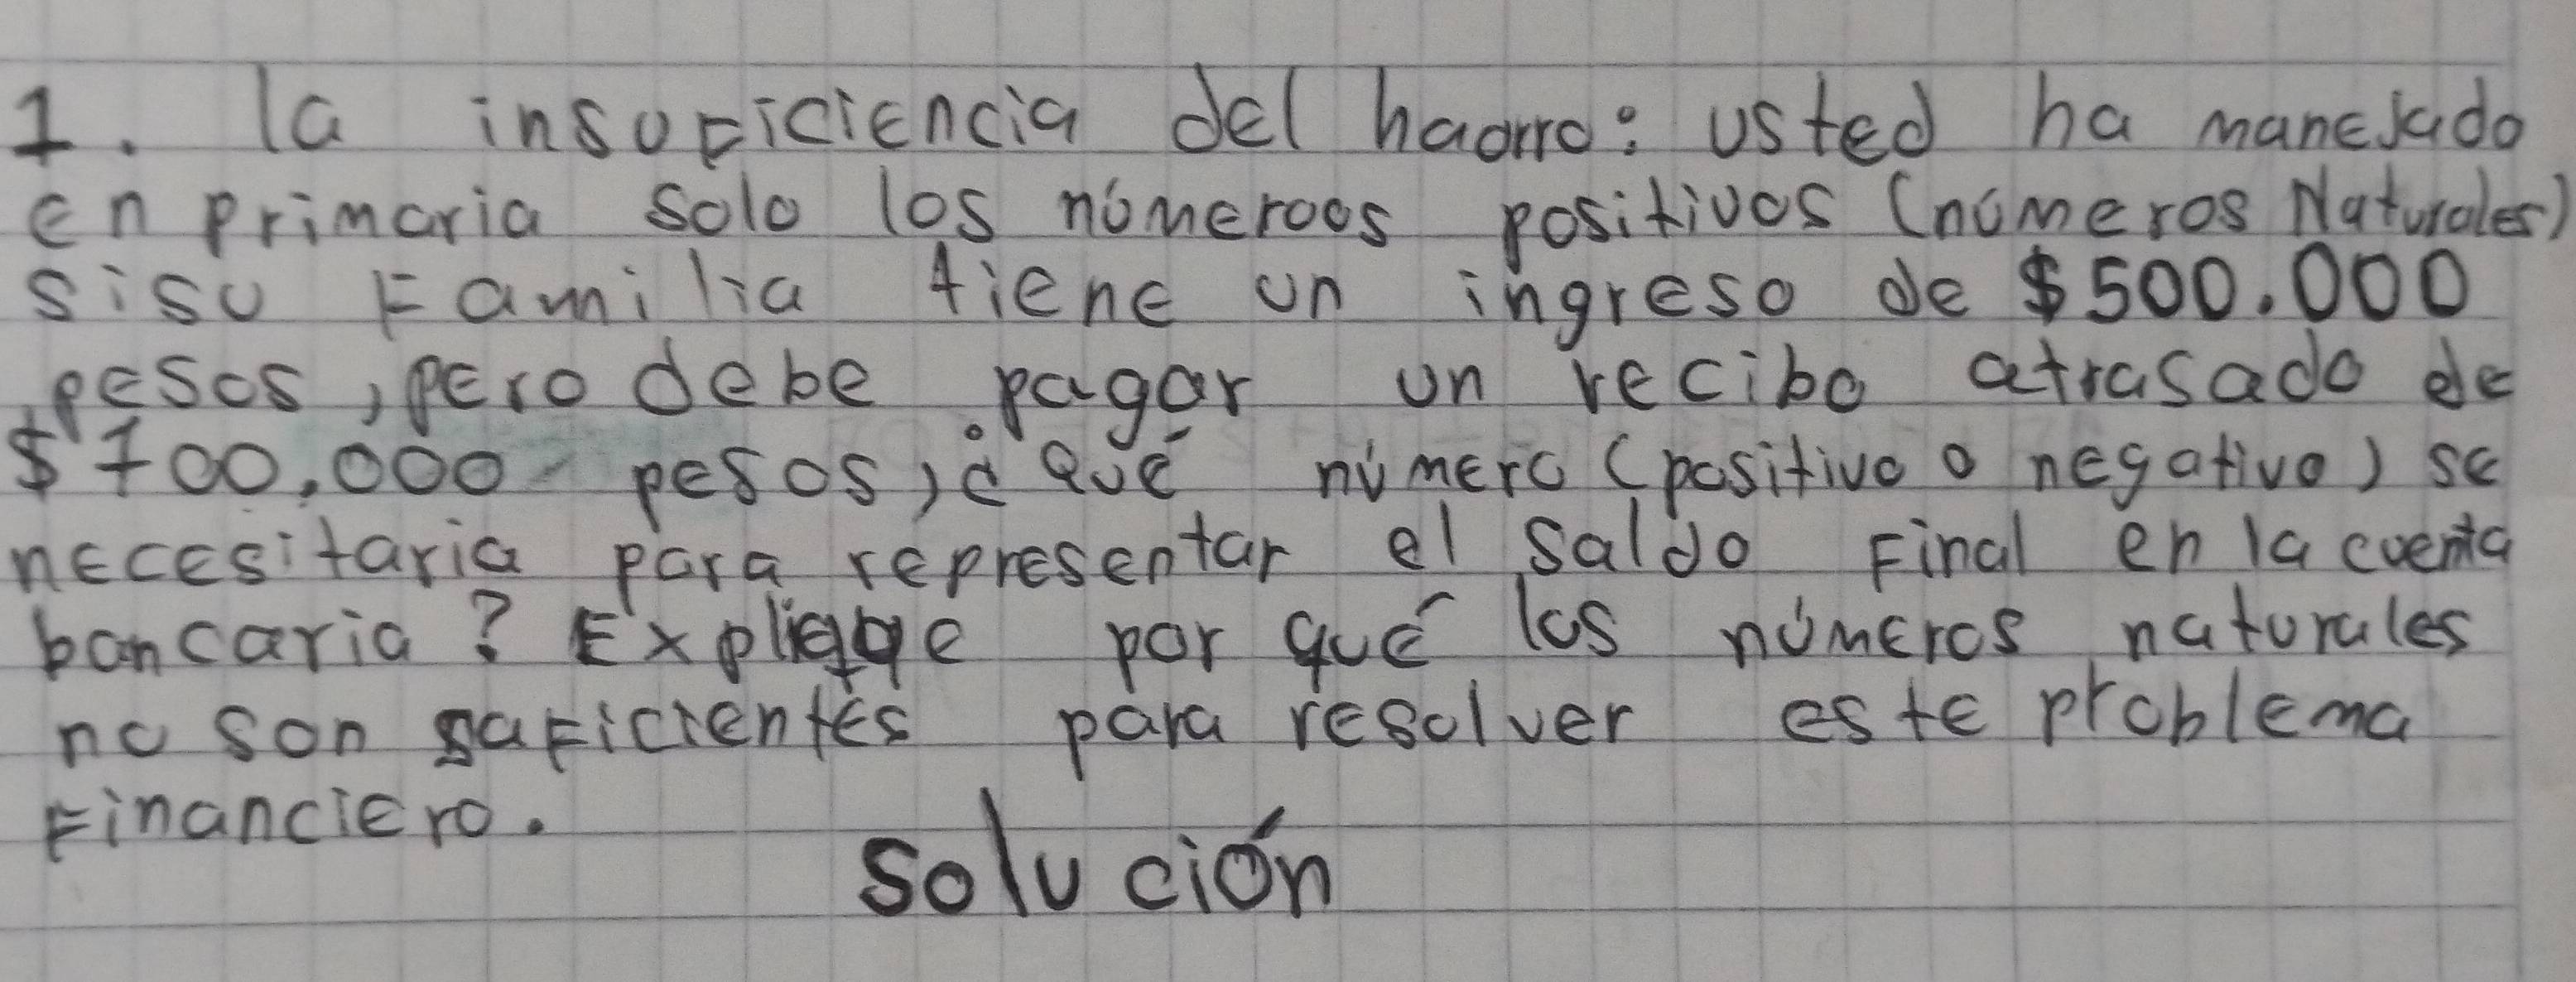 1. la insuficiencia del haorro: usted ha manejado
en primaria solo los númeroos positivos (números Naturales)
si su Familia tiene un ingreso de $500.000
pesos, pero debe pagar un recibo atrasado de
$700.000 pesos, ¿Qué número (positivo o negativo) se
necesitaria para representar el saldo Final en la cuenta
bancaria? Explique por qué los números naturales
no son suficientes para resolver este problema
Financiero.
Solución